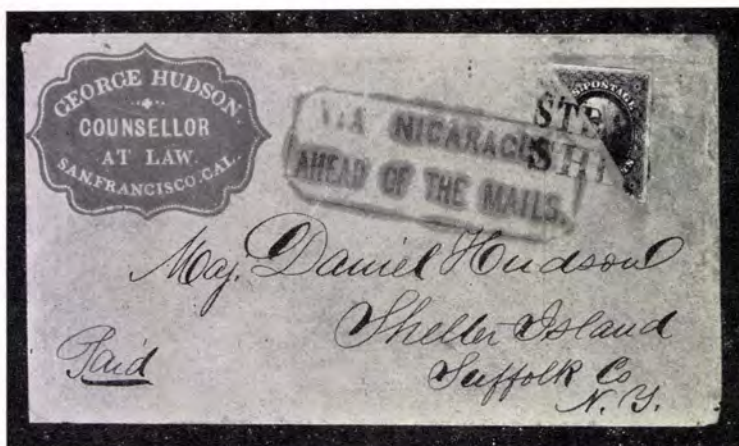 GEORGE HUDSON.
COUNSELLOR
AT LAW.
SAN.FRANCISCO.CAL.
VIA NICARAGU
AHEAD OF THE MAILS.
POSTAGE
STE
SHI
Maj. Daniel Hudson
Shelter Island
Suffolk Co
N. Y.
Paid